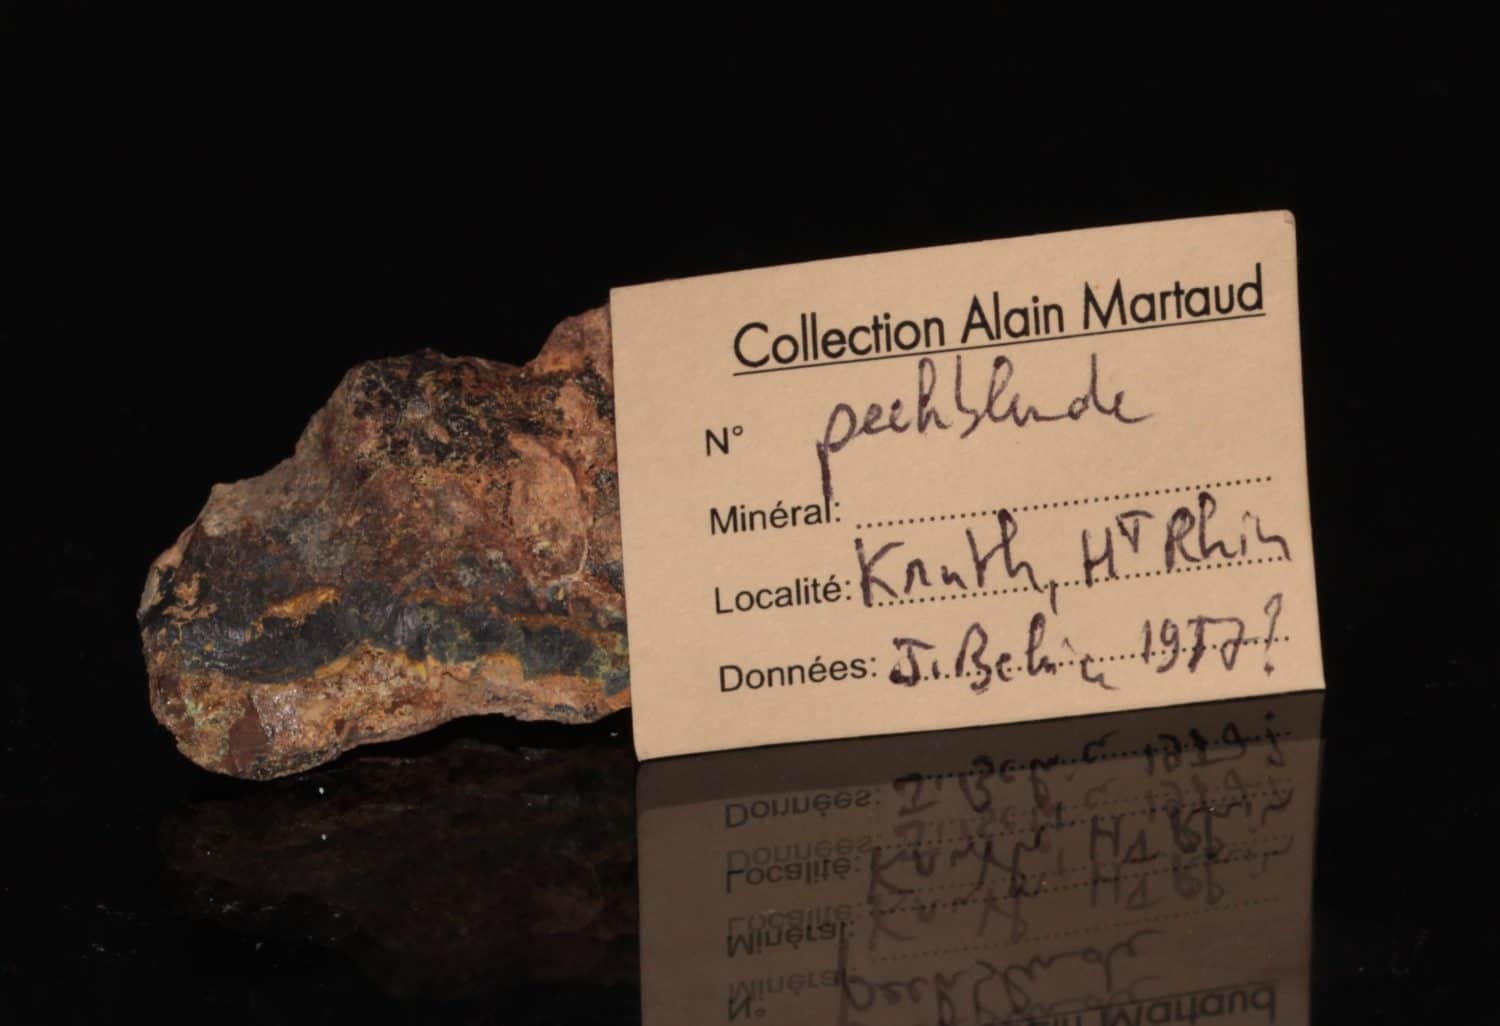 Collection Alain Martaud
N° pechblende
Minéral:
Localité: Kruth, Hᵀ Rhin
Données: J. 19